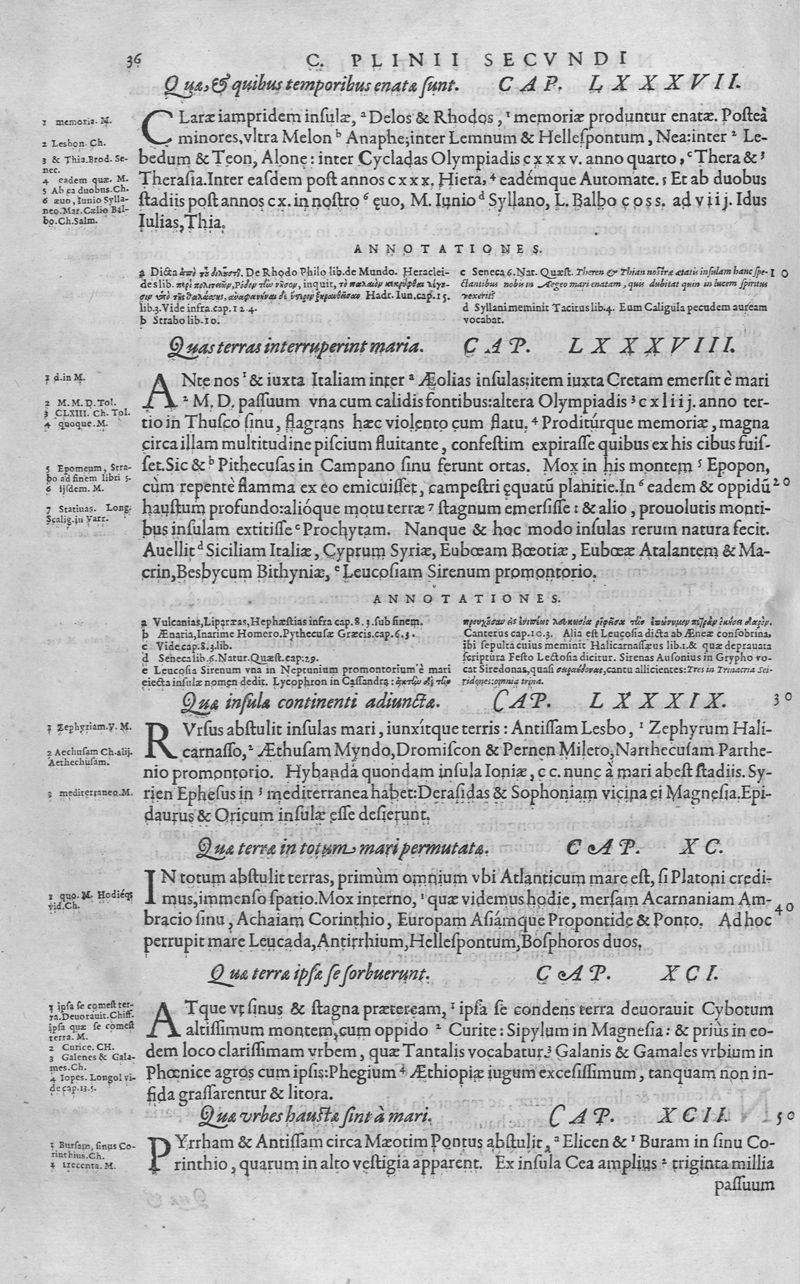 36
C. PLINII SECVNDI
Quæ, & quibus temporibus enatæ sunt. CAP. LXXXVII.
1 memoria. M.
2 Lesbon. Ch.
3 & Thia. Brod. Se-
nec.
4 eadem quæ. M.
5 Ab ea duobus. Ch.
6 æuo, Iunio Sylla-
neo. Mar. Cælio Bal-
bo. Ch. Salm.
CLaræ iampridem insulæ, ᵃ Delos & Rhodos, ¹ memoriæ produntur enatæ. Posteà
minores, vltra Melon ᵇ Anaphe; inter Lemnum & Hellespontum, Nea: inter ² Le-
bedum & Teon, Alone: inter Cycladas Olympiadis cxxxv. anno quarto, ᶜ Thera & ³
Therasia. Inter easdem post annos cxxx. Hiera, ⁴ eadémque Automate. 5 Et ab duobus
stadiis post annos cx. in nostro ⁶ ęuo, M. Iunio ᵈ Syllano, L. Balbo coss. ad viij. Idus
Iulias, Thia.
ANNOTATIONES.
a Dicta ἀπὸ τοῦ δηλοῦν. De Rhodo Philo lib. de Mundo. Heraclei-
des lib. περὶ πολιτειῶν, inquit,
Hadr. Iun. cap. 15.
lib. 3. Vide infra. cap. 124.
b Strabo lib. 10.
c Seneca 6. Nat. Quæst. Theren & Thian nostræ ætatis insulam hanc spe- 10
ctantibus nobis in Ægeo mari enatam, quis dubitat quin in lucem spiritus
vexerit?
d Syllani meminit Tacitus lib. 4. Eum Caligula pecudem auream
vocabat.
Quas terras interruperint maria. CAP. LXXXVIII.
1 d. in M.
2 M. M. D. Tol.
3 CLXIII. Ch. Tol.
4 quoque. M.
5 Epomeum, Stra-
bo ad finem libri 5.
6 ijsdem. M.
7 Statinas. Long.
Scalig. in Varr.
ANte nos ¹ & iuxta Italiam inter ᵃ Æolias insulas; item iuxta Cretam emersit è mari
² M. D. passuum vna cum calidis fontibus: altera Olympiadis ³ cxliij. anno ter-
tio in Thusco sinu, flagrans hæc violento cum flatu. ⁴ Proditúrque memoriæ, magna
circa illam multitudine piscium fluitante, confestim expirasse quibus ex his cibus fuis-
set. Sic & ᵇ Pithecusas in Campano sinu ferunt ortas. Mox in his montem ⁵ Epopon,
cùm repentè flamma ex eo emicuisset, campestri ęquatū planitie. In ⁶ eadem & oppidū 20
haustum profundo: alióque motu terræ ⁷ stagnum emersisse: & alio, prouolutis monti-
bus insulam extitisse ᶜ Prochytam. Nanque & hoc modo insulas rerum natura fecit.
Auellit ᵈ Siciliam Italiæ, Cyprum Syriæ, Eubœam Bœotiæ, Eubœæ Atalantem & Ma-
crin, Besbycum Bithyniæ, ᵉ Leucosiam Sirenum promontorio.
ANNOTATIONES.
a Vulcanias, Liparæas, Hephæstias infra cap. 8. 3. sub finem.
b Ænaria, Inarime Homero. Pythecusæ Græcis. cap. 6. 3.
c Vide. cap. 8. 3. lib.
d Seneca lib. 6. Natur. Quæst. cap. 29.
e Leucosia Sirenum vna in Neptunium promontorium è mari
eiecta insulæ nomen dedit. Lycophron in Cassandra:
Canterus cap. 10. 3. Alia est Leucosia dicta ab Æneæ consobrina,
ibi sepulta cuius meminit Halicarnasseus lib. 1. & quæ deprauata
scriptura Festo Lectosia dicitur. Sirenas Ausonius in Grypho vo-
cat Siredonas, quasi cantu allicientes: Tres in Trinacria Sei-
ridones: omnia trina.
Quæ insula continenti adiuncta. CAP. LXXXIX. 30
1 Zephyriam. V. M.
2 Aechusam Ch. alij.
Aethechusam.
3 mediterraneo. M.
RVrsus abstulit insulas mari, iunxítque terris: Antissam Lesbo, ¹ Zephyrum Hali-
carnasso, ² Æthusam Myndo, Dromiscon & Pernen Mileto, Narthecusam Parthe-
nio promontorio. Hybanda quondam insula Ioniæ, cc. nunc à mari abest stadiis. Sy-
rien Ephesus in ³ mediterranea habet: Derasidas & Sophoniam vicina ei Magnesia. Epi-
daurus & Oricum insulæ esse desierunt.
Quæ terræ in totum mari permutatæ. CAP. XC.
1 quo. M. Hodiéq;
vid. Ch.
IN totum abstulit terras, primùm omnium vbi Atlanticum mare est, si Platoni credi-
mus, immenso spatio. Mox interno, ¹ quæ videmus hodie, mersam Acarnaniam Am- 40
bracio sinu, Achaiam Corinthio, Europam Asiámque Propontide & Ponto. Ad hoc
perrupit mare Leucada, Antirrhium, Hellespontum, Bosphoros duos.
Quæ terræ ipsæ se sorbuerunt. CAP. XCI.
1 ipsa se comest ter-
ra. Deuorauit. Chiff.
ipsa quæ se comest
terra. M.
2 Curice. CH.
3 Galenes & Gala-
mes. Ch.
4 Iopes. Longol vi-
de cap. 13. 5.
ATque vt sinus & stagna præteream, ¹ ipsa se condens terra deuorauit Cybotum
altissimum montem, cum oppido ² Curite: Sipylum in Magnesia: & priùs in eo-
dem loco clarissimam vrbem, quæ Tantalis vocabatur: ³ Galanis & Gamales vrbium in
Phœnice agros cum ipsis: Phegium ⁴ Æthiopiæ iugum excelsissimum, tanquam non in-
fida grassarentur & litora.
Quæ vrbes haustæ sint à mari. CAP. XCII. 50
1 Bursam, sinus Co-
rinthius. Ch.
2 trecenta. M.
PYrrham & Antissam circa Mæotim Pontus abstulit, ᵃ Elicen & ¹ Buram in sinu Co-
rinthio, quarum in alto vestigia apparent. Ex insula Cea amplius ² triginta millia
passuum